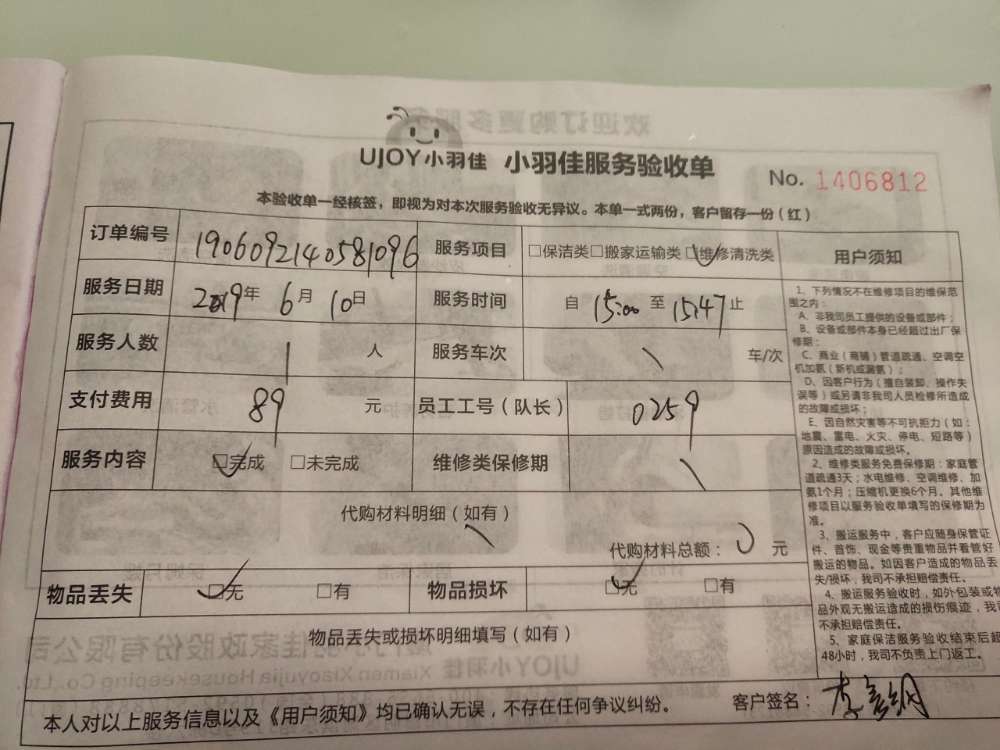 UJOY小羽佳 小羽佳服务验收单 No. 1406812
本验收单一经核签，即视为对本次服务验收无异议。本单一式两份，客户留存一份（红）
订单编号 1906092140581096 服务项目 □保洁类□搬家运输类□维修清洗类
服务日期 2019年 6月 10日 服务时间 自 15:00 至 15:47 止
服务人数 1 人 服务车次 \ 车/次
支付费用 89 元 员工工号（队长） 0259
服务内容 □完成 □未完成 维修类保修期 \
代购材料明细（如有）
\
代购材料总额： 0 元
物品丢失 □无 □有 物品损坏 □无 □有
物品丢失或损坏明细填写（如有）
本人对以上服务信息以及《用户须知》均已确认无误，不存在任何争议纠纷。 客户签名：
用户须知
1、下列情况不在维修项目的维保范
围之内：
A、非我司员工提供的设备或部件；
B、设备或部件本身已经超过出厂保
修期；
C、商业（商铺）管道疏通、空调空
机加氨（新机或漏氨）；
D、因客户行为（擅自装卸、操作失
误等）或另请非我司人员检修所造成
的故障或损坏；
E、因自然灾害等不可抗拒力（如：
地震、雷电、火灾、停电、短路等）
原因造成的故障或损坏。
2、维修类服务免费保修期：家庭管
道疏通3天；水电维修、空调维修、加
氨1个月；压缩机更换6个月。其他维
修项目以服务验收单填写的保修期为
准。
3、搬运服务中，客户应随身保管证
件、首饰、现金等贵重物品并看管好
搬运的物品。如因客户造成的物品丢
失/损坏，我司不承担赔偿责任。
4、搬运服务验收时，如外包装或物
品外观无搬运造成的损伤痕迹，我司
不承担赔偿责任。
5、家庭保洁服务验收结束后超
48小时，我司不负责上门返工。